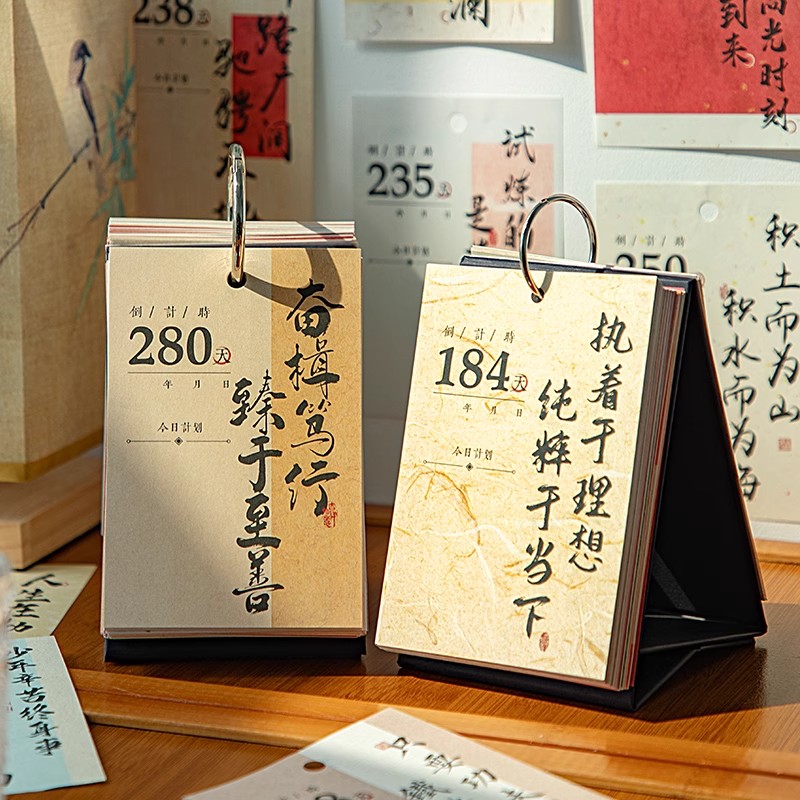 238天
路广阔
驰骋
阔
高光时刻
到来
倒/計/時
235天
年 月 日
今日計划
试炼的
是
倒/計/時
250
积土而为山
积水而为海
倒/計/時
280天
年 月 日
今日計划
奋楫笃行
臻于至善
倒/計/時
184天
年 月 日
今日計划
执着于理想
纯粹于当下
人生至
少年辛苦终身事
只要功夫